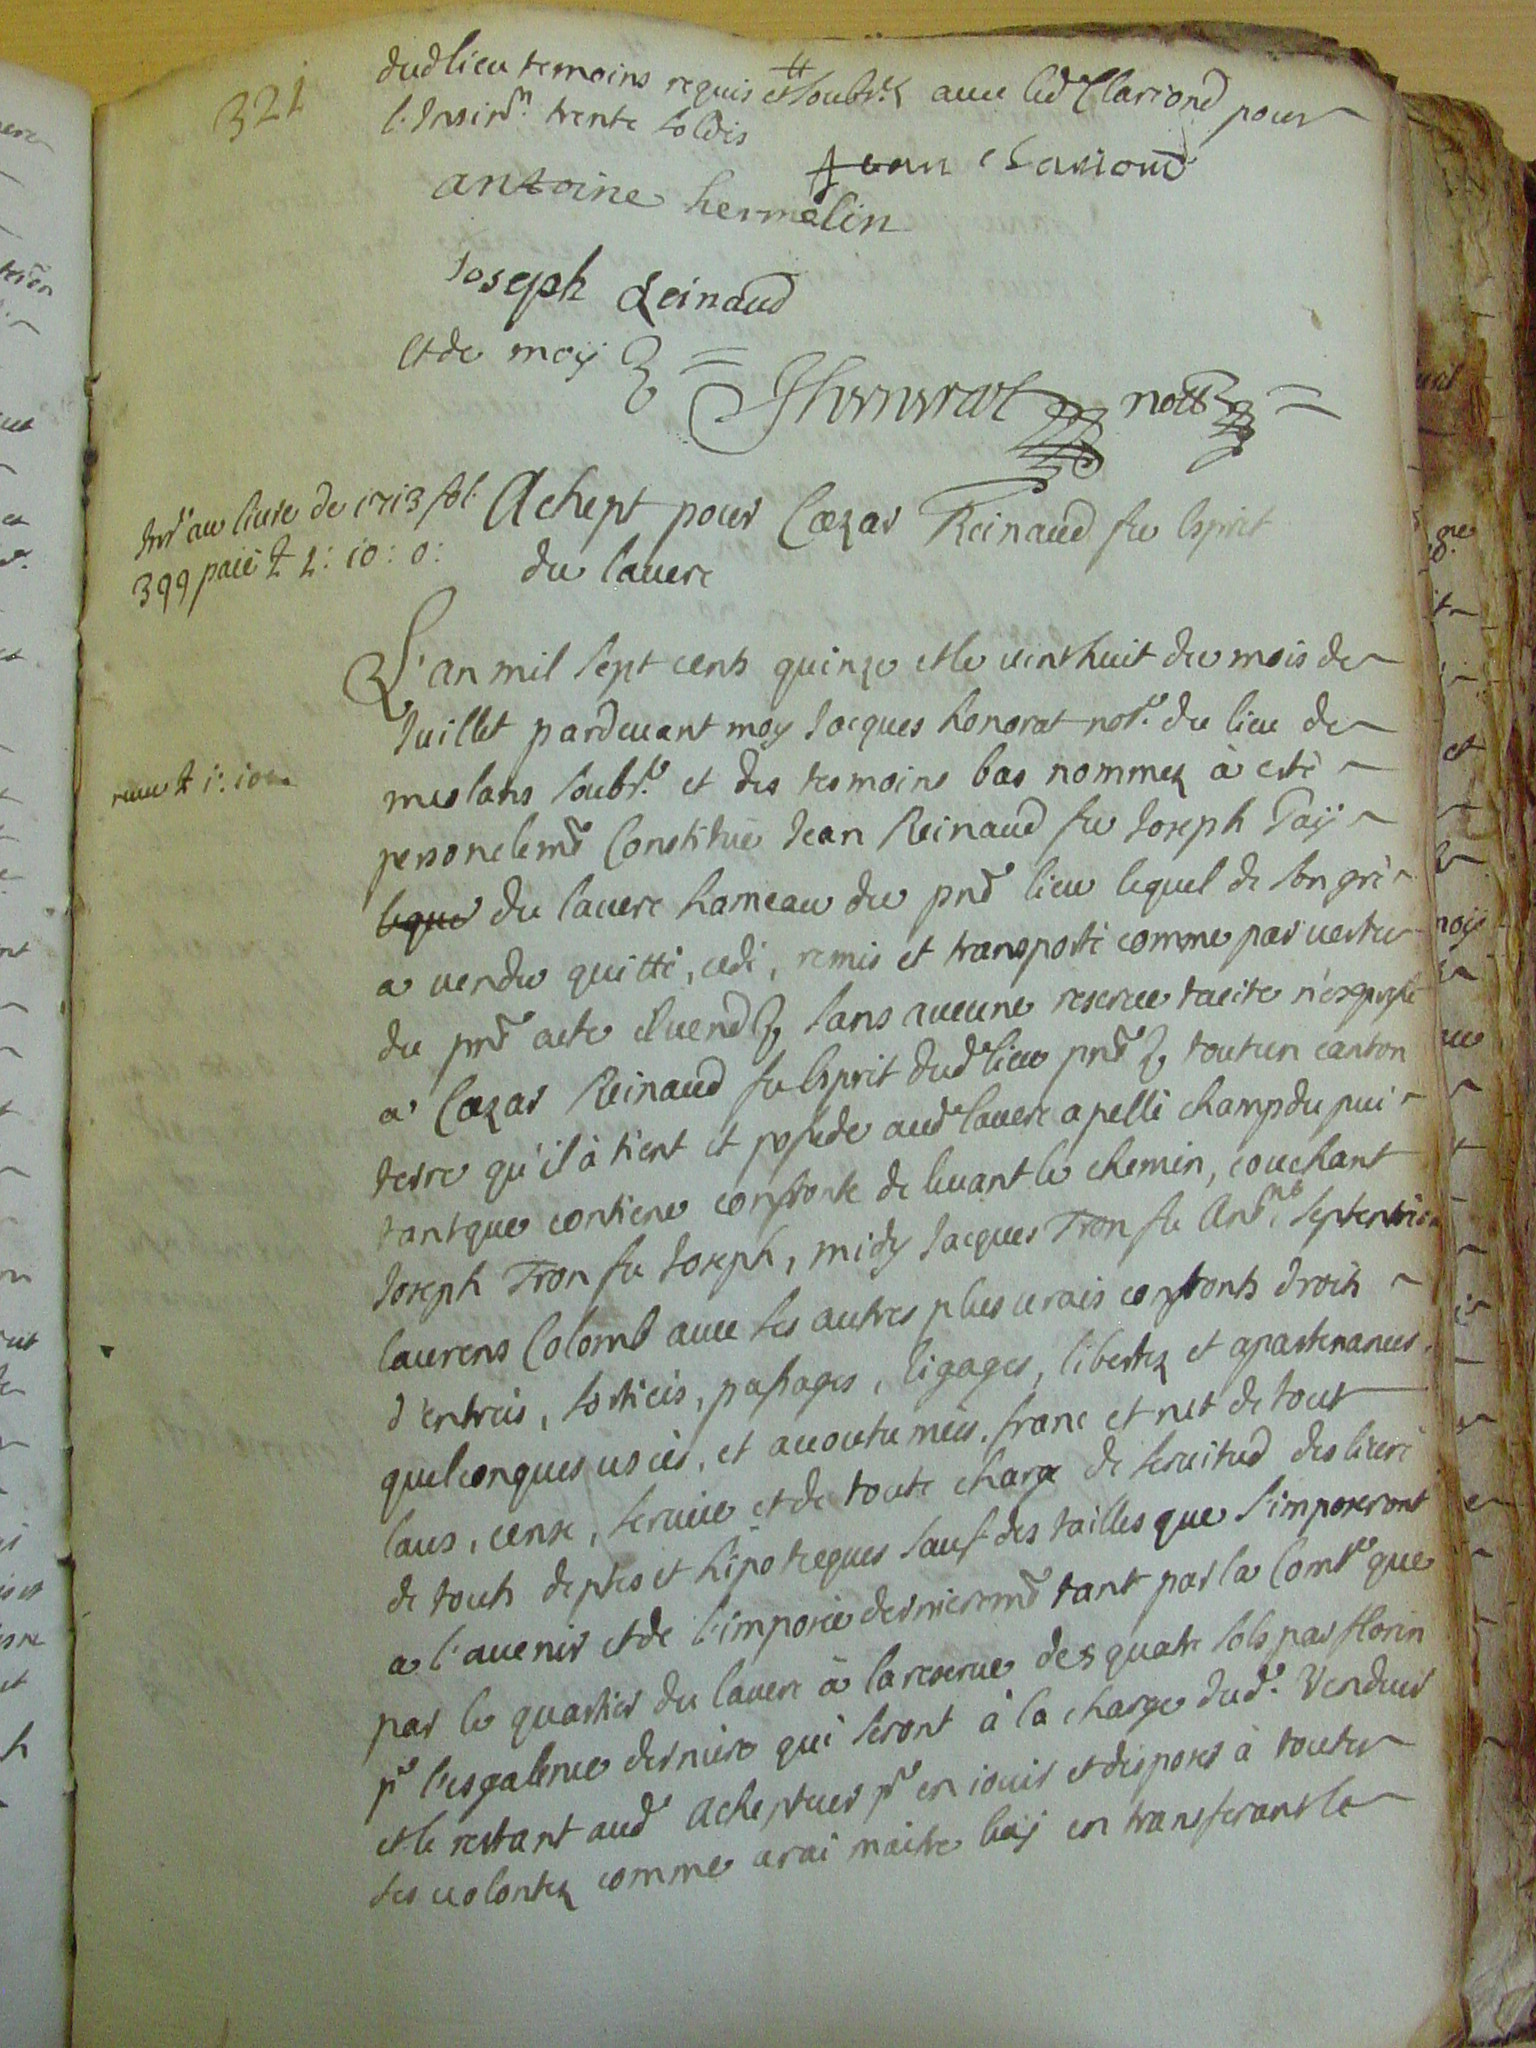 321
dud lieu temoins requis et soubsez avec led Clariond pour
l'insinōn trente soldis
Jean Clariond
antoine hermelin
Joseph Reinaud
et de moy
JHonnorat nottre
Achept pour Cæzar Reinaud fu Esprit
du lavere
Insé au livre de 1713 fol.
399 paié ₶ 2: 10: 0:
L'an mil sept cents quinze et le vint huit du mois de
Juillet pardevant moy Jacques honorat notre du lieu de
meolans soubsé et des tesmoins bas nommez à esté
reçeu ₶ 1: 10
personelemt Constitué Jean Reinaud fu Joseph Paÿ
lequel du lavere hameau du pnt lieu lequel de son gré
a vendu quitté, cedé, remis et transporté comme par vertu
du pnt acte il vend &, sans aucune reserve tacite n'expresse
a' Cæzar Reinaud fu Esprit dud lieu pnt & tout un canton
terre qu'il à tient et possede aud lavere apellé champ du pui
tant que contient confronte de levant le chemin, couchant
Joseph Tron fu Joseph, midy Jacques Tron fu Antne, septentrion
laurens Colomb avec ses autres plus vrais confronts droits
d'entreés, sortieés, passages, ligages, libertez et apartenances,
quelconques usées, et acoutumées. franc et net de tout
laus, cense, service et de toute charge de servitud deslivré
de touts deptes et hipoteques sauf des tailles que s'imposeront
a l'avenir et de l'imposée dernieremt tant par la Comté que
par le quartier du lavere à la reserve des quatre sols par florin
pr l'esgalence derniere qui seront à la charge dud. Vendeur
et le restant aud Achepteur pr en jouir et disposer à toutes
ses volontez comme vrai maitre luÿ en transferant le